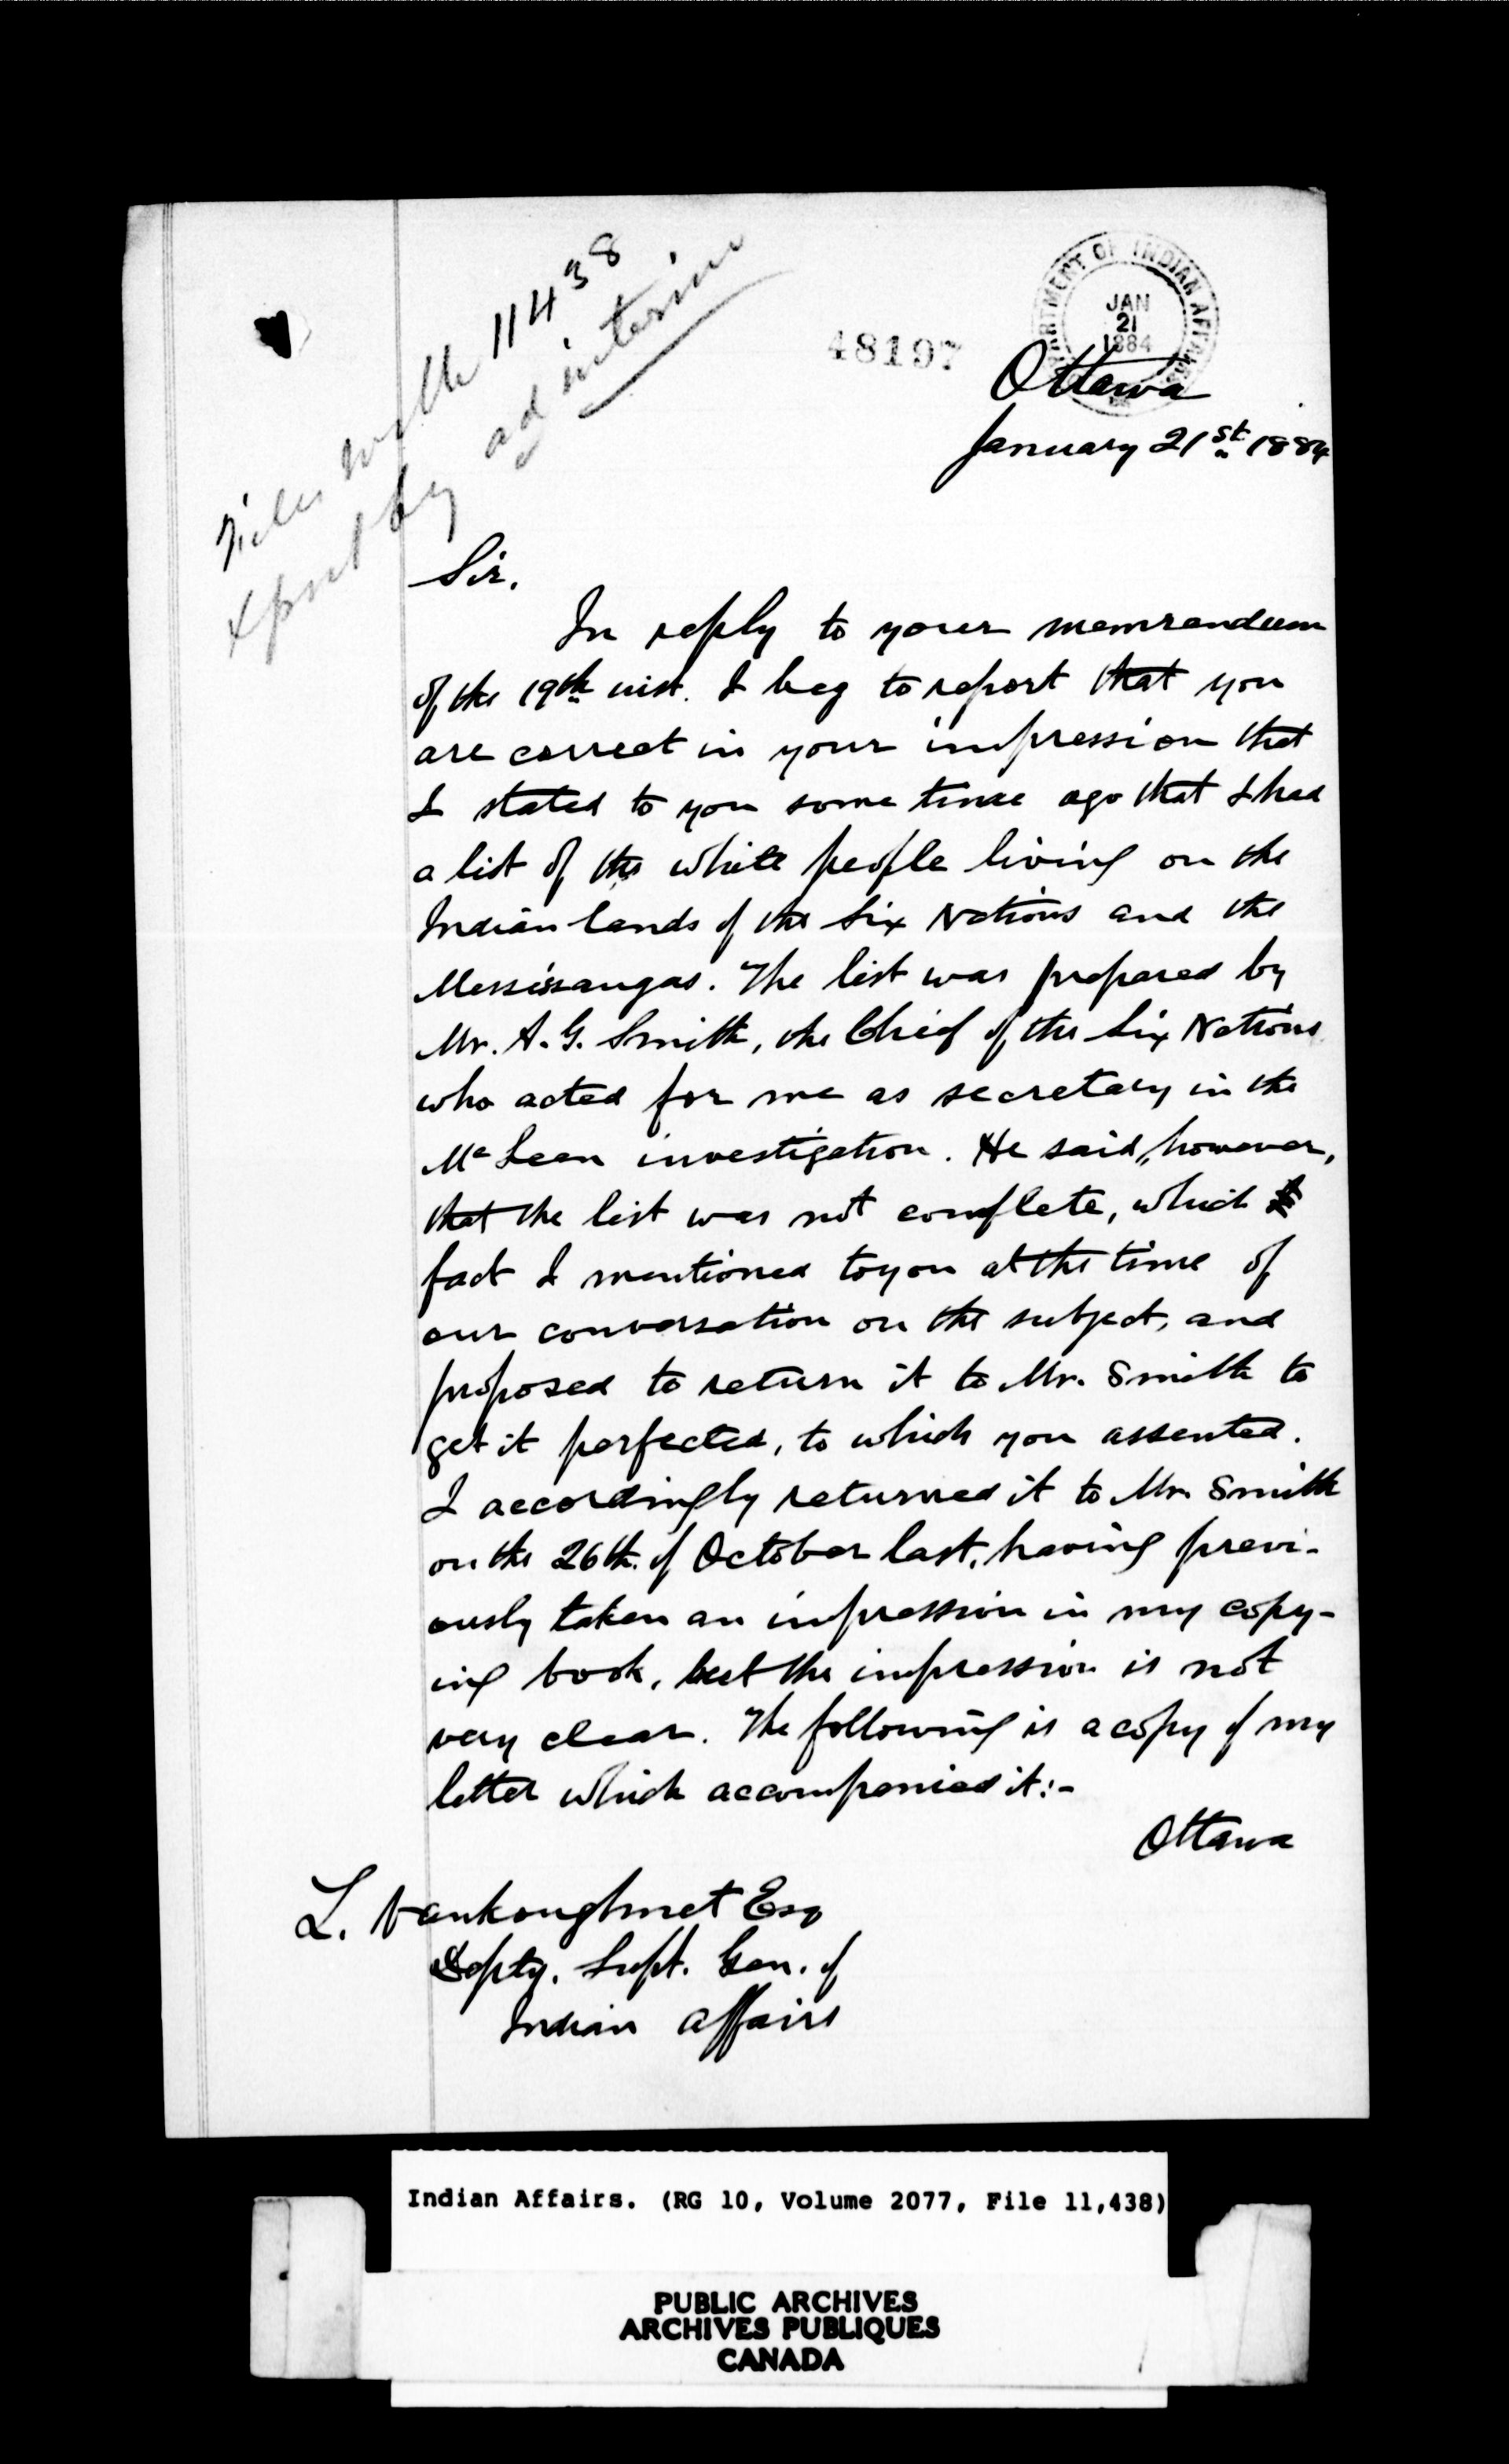 Files with 11438
& put by ad interim
48197
DEPARTMENT OF INDIAN AFFAIRS
JAN
21
1884
Ottawa
January 21st 1884
Sir.
In reply to your memrandum
of the 19th inst. I beg to report that you
are correct in your impression that
I stated to you some time ago that I had
a list of the white people living on the
Indian lands of the Six Nations and the
Messissaugas. The list was prepared by
Mr. A. G. Smith, the Chief of the Six Nations
who acted for me as secretary in the
McLean investigation. He said, however,
that the list was not complete, which
fact I mentioned to you at the time of
our conversation on the subject, and
proposed to return it to Mr. Smith to
get it perfected, to which you assented.
I accordingly returned it to Mr. Smith
on the 26th. of October last, having previ-
ously taken an impression in my copy-
ing book, but the impression is not
very clear. The following is a copy of my
letter which accompanied it:-
Ottawa
L. Vankoughnet Esq
Depty. Supt. Gen. of
Indian Affairs
Indian Affairs. (RG 10, Volume 2077, File 11,438)
PUBLIC ARCHIVES
ARCHIVES PUBLIQUES
CANADA